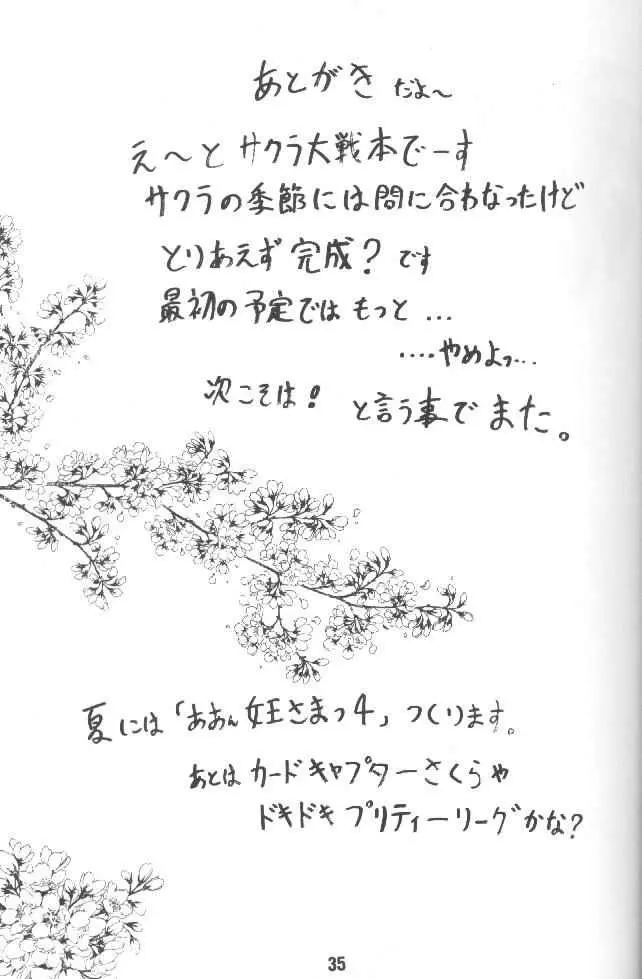 あとがき だよ～
え～と サクラ大戦本でーす
サクラの季節には間に合わなったけど
とりあえず 完成？です
最初の予定では もっと …
‥‥やめよっ…
次こそは！ と言う事で また。
夏には「ああん女王さまっ4」つくります。
あとは カードキャプターさくらや
ドキドキ プリティーリーグかな？
35